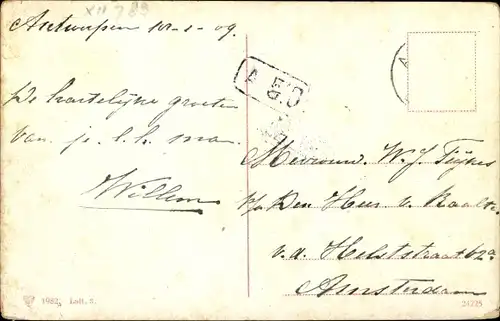 XII 789
Antwerpen 10-1-09.
De hartelijke groeten
van je l. h. man.
Willem
Mevrouw. W. J.
p/a Den Heer v. Raalte
v. d. Helststraat 62a
Amsterdam
1982, Lott. 8.
24725